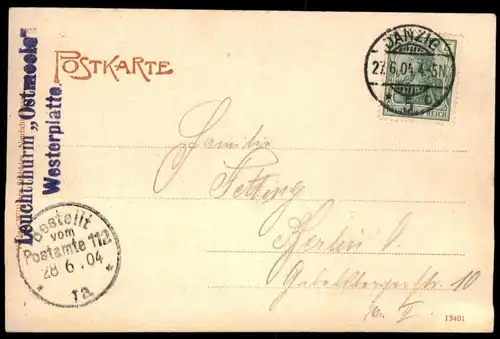 Leuchtthurm „Ostmoole"
Westerplatte.
POSTKARTE
DANZIG
27.6.04.4-5N
DEUTSCHES REICH
Familie
Fetting
Berlin
Gabelsbergerstr. 10
II
Bestellt
vom
Postamte 112
28 6. 04
13401